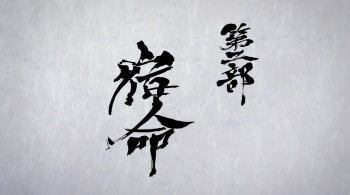 第二部
宿命